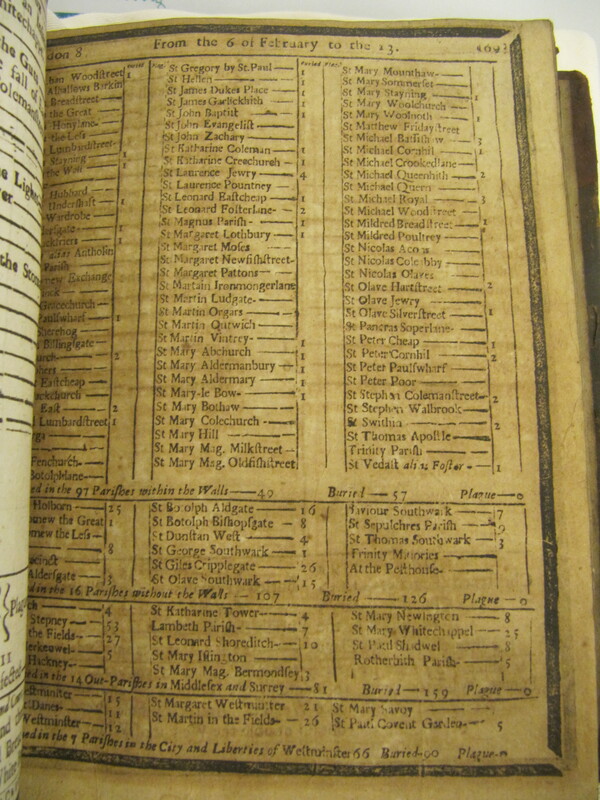 don 8. From the 6 of February to the 13. 1693
Woodstreet 1
Alhallows Barkin
Breadstreet 1
the Great
Honylane
the Less
Lumbardstreet
Stayning 1
the Wall 1
Hubbard
Undershaft 1
Wardrobe 1
alias Antholin
Parish
new Exchange
Gracechurch
Paulswharf 1
Sherehog
Billingsgate
2
Eastcheap
East 2
Lumbardstreet 1
Fenchurch
Botolphlane
St Gregory by St.Paul 1
St Hellen 1
St James Dukes Place 1
St James Garlickhith 1
St John Baptist 1
St John Evangelist
St John Zachary
St Katharine Coleman 1
St Katharine Creechurch 1
St Laurence Jewry 4
St Laurence Pountney
St Leonard Eastcheap 1
St Leonard Fosterlane 2
St Magnus Parish 1
St Margaret Lothbury 1
St Margaret Moses
St Margaret Newfishstreet
St Margaret Pattons
St Martain Ironmongerlane
St Martin Ludgate
St Martin Orgars
St Martin Outwich
St Martin Vintrey 1
St Mary Abchurch 1
St Mary Aldermanbury 1
St Mary Aldermary 1
St Mary-le Bow 1
St Mary Bothaw
St Mary Colechurch
St Mary Hill
St Mary Mag. Milkstreet
St Mary Mag. Oldfishstreet
St Mary Mounthaw
St Mary Sommerset
St Mary Stayning 1
St Mary Woolchurch
St Mary Woolnoth 1
St Matthew Fridaystreet
St Michael Bassishaw 3
St Michael Cornhil 1
St Michael Crookedlane
St Michael Queenhith 2
St Michael Quern
St Michael Royal 3
St Michael Woodstreet
St Mildred Breadstreet 1
St Mildred Poultrey
St Nicolas Acons
St Nicolas Coleabby
St Nicolas Olaves
St Olave Hartstreet 2
St Olave Jewry
St Olave Silverstreet 1
St Pancras Soperlane
St Peter Cheap 1
St Peter Cornhil 2
St Peter Paulswharf
St Peter Poor
St Stephen Colemanstreet 2
St Stephen Walbrook
St Swithin 2
St Thomas Apostle
Trinity Parish
St Vedast alias Foster 1
ed in the 97 Parishes within the Walls 40 Buried 57 Plague 0
Holborn 25
the Great
the Less
8
Aldersgate 3
St Botolph Aldgate 16
St Botolph Bishopsgate 8
St Dunstan West 4
St George Southwark 1
St Giles Cripplegate 26
St Olave Southwark 15
Saviour Southwark 17
St Sepulchres Parish
St Thomas Southwark 3
Trinity Minories
At the Pesthouse
in the 16 Parishes without the Walls 107 Buried 126 Plague 0
4
Stepney 53
the Fields 27
5
Hackney
St Katharine Tower 4
Lambeth Parish 7
St Leonard Shoreditch 10
St Mary Islington
St Mary Mag. Bermondsey 3
St Mary Newington 8
St Mary Whitechappel 25
St Paul Shadwel 8
Rotherhith Parish 5
ed in the 14 Out-Parishes in Middlesex and Surrey 81 Buried 159 Plague 0
15
Danes 11
Westminster 12
St Margaret Westminster 21
St Martin in the Fields 26
St Mary Savoy
St Paul Covent Garden 5
ed in the 7 Parishes in the City and Liberties of Westminster 66 Buried 90 Plague 0